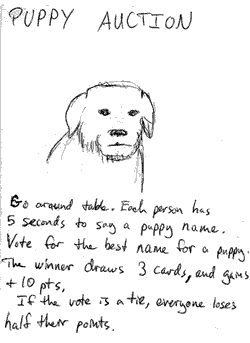 PUPPY AUCTION
Go around table. Each person has
5 seconds to say a puppy name.
Vote for the best name for a puppy.
The winner draws 3 cards, and gains
+10 pts,
If the vote is a tie, everyone loses
half their points.